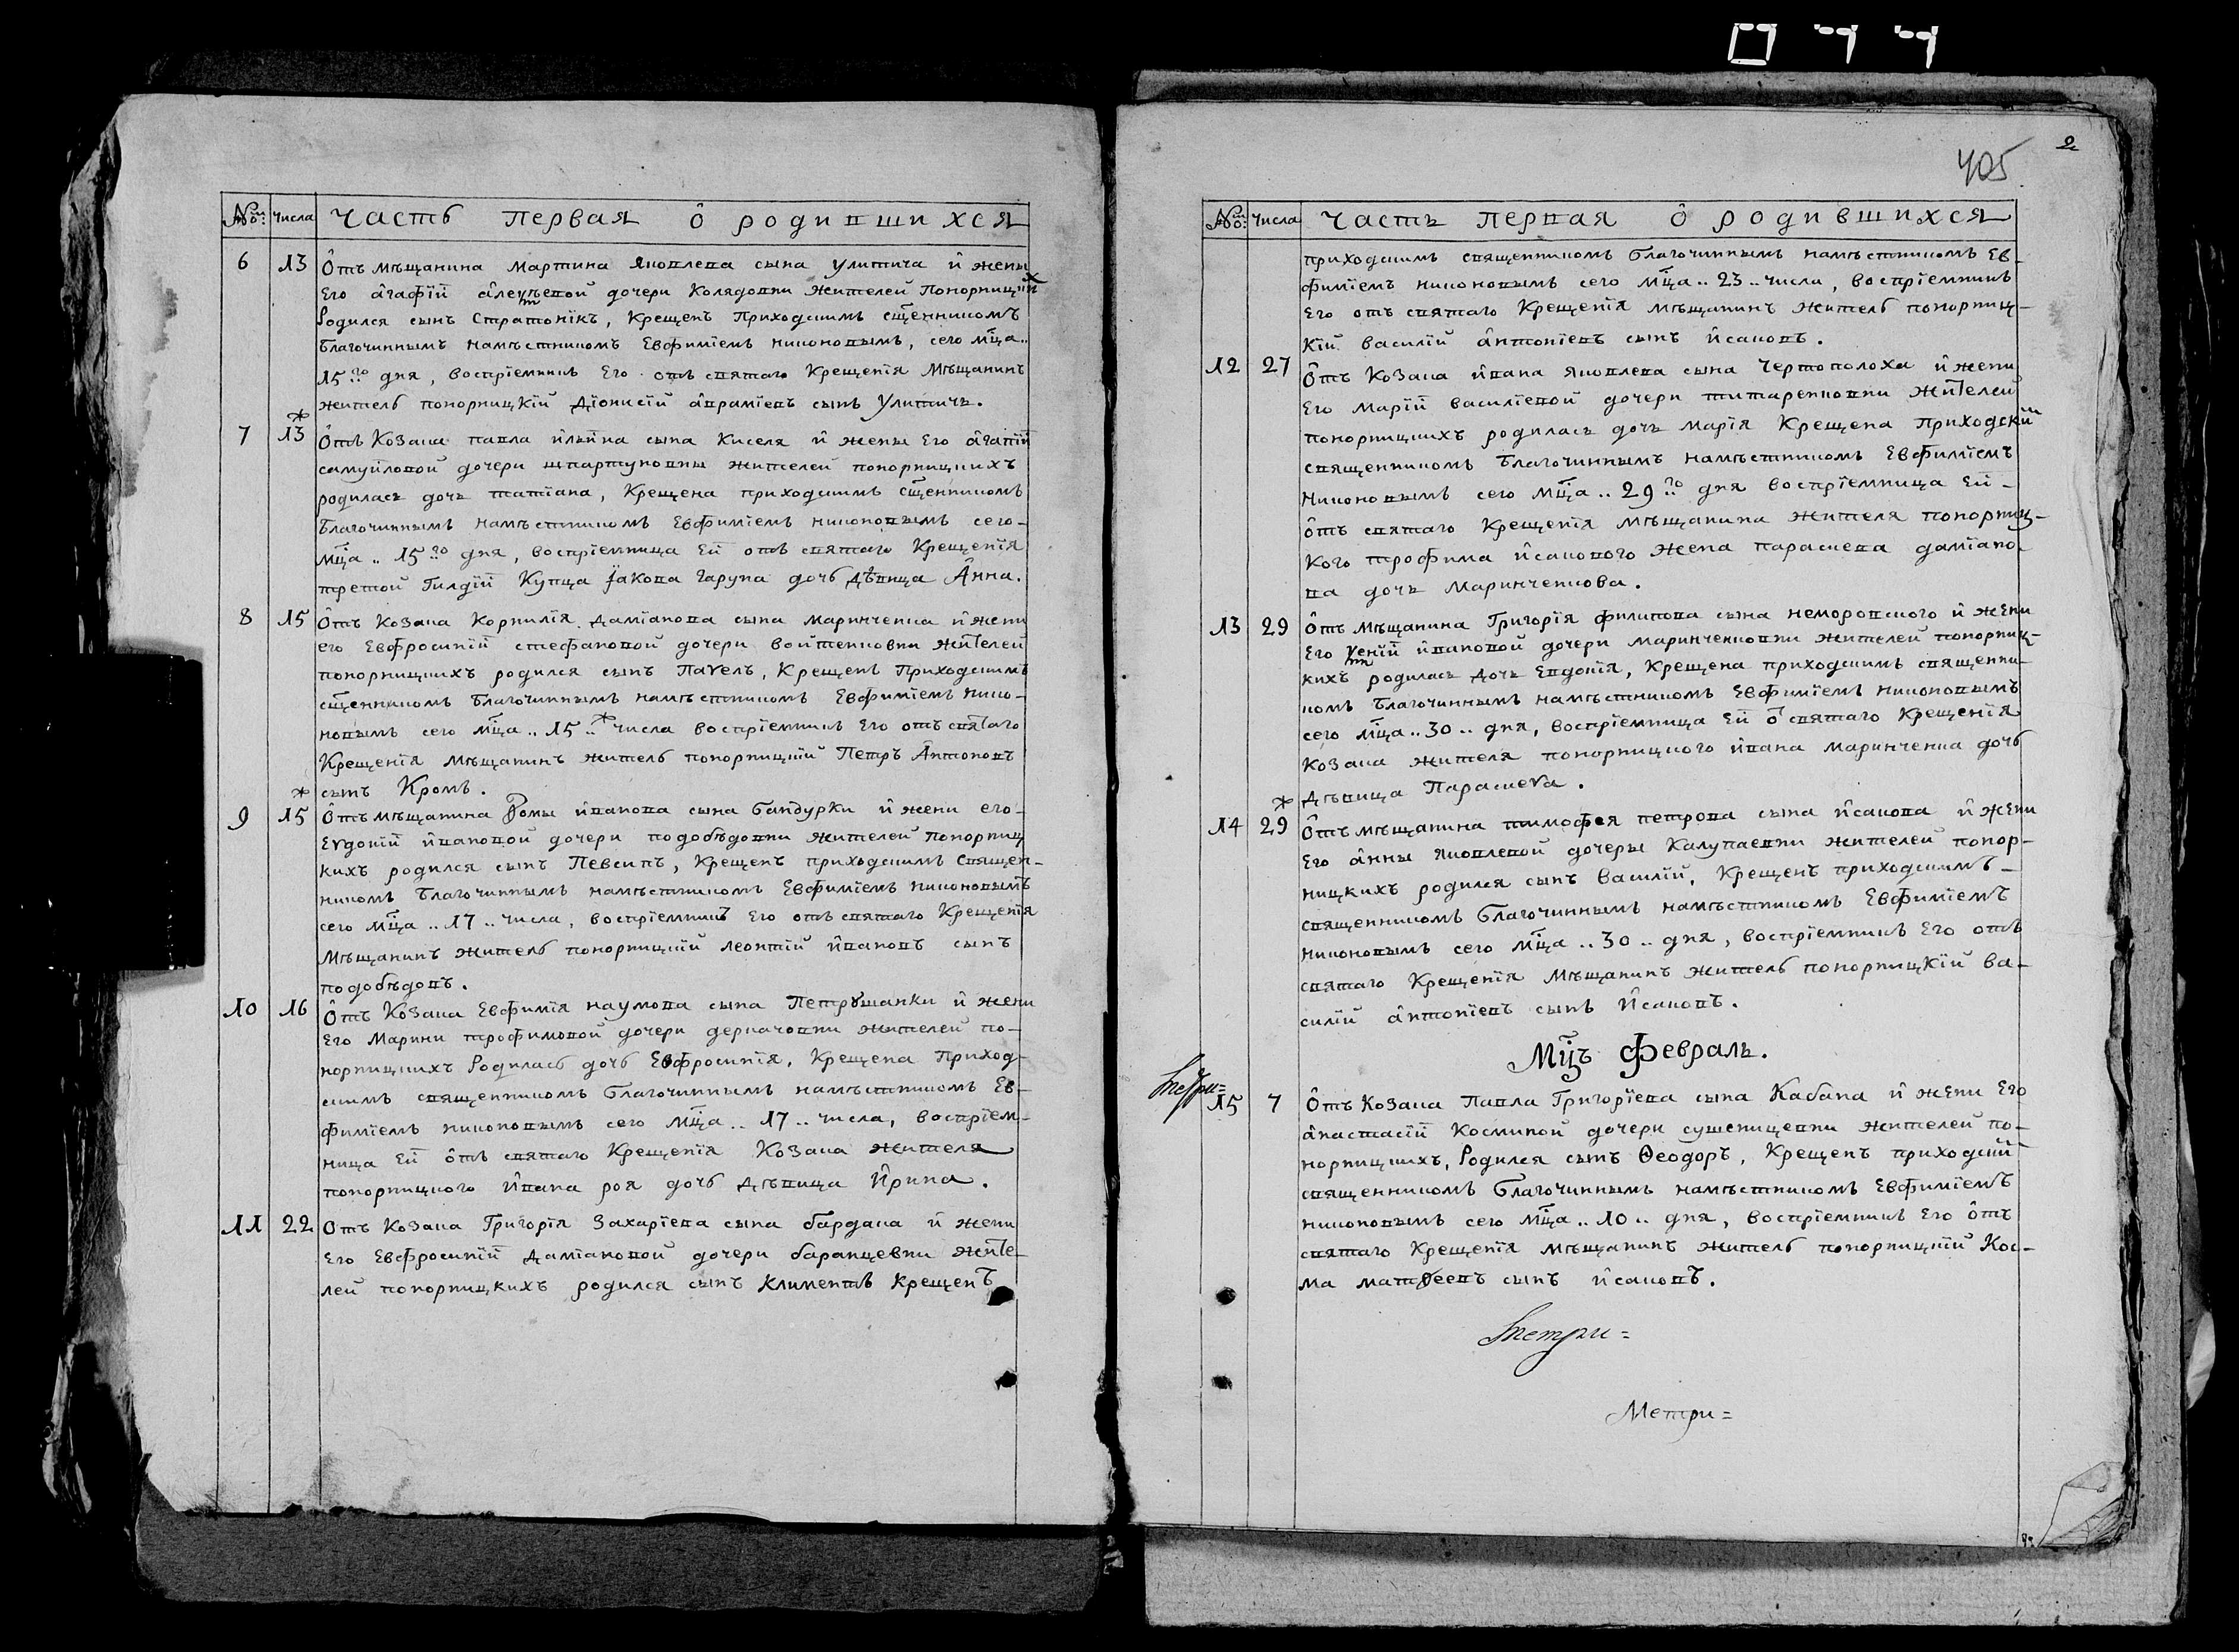 044
№ числа часть первая о родившихся
6 13 Отъ мѣщанина Мартина Яковлева сына Улитича и жены
Его Агафїи Алексѣевой дочери Колядовни жителей Понорницких
Родился сынъ Стратонїкъ, Крещенъ Приходскимъ сщенникомъ
Благочиннымъ намѣстникомъ Евфимїемъ никоновымъ, сего мца..
15го дня, воспрїемникъ Его отъ святаго Крещенїя Мѣщанинъ
житель понорницкїй Дїонисїй Аврамїевъ сынъ Улитичъ.
7 13 Отъ Козака павла ильина сына Киселя и жены Его Агапїи
самуйловой дочери шпартуковны жителей понорницкихъ
родилась дочь татїана, Крещена приходскимъ сщенникомъ
Благочиннымъ намѣстникомъ Евфимїемъ никоновымъ сего-
мца.. 15го дня, воспрїемница Ей отъ святаго Крещенїя
третой Гилдїи Купца Їакова Гаруна дочь Дѣвица Анна.
8 15 Отъ Козака Корнилїя Дамїанова сына Маринченка и жени
его Евфросинїи стефановой дочери войтенковни жителей
понорницкихъ родился сынъ Паvелъ, Крещенъ Приходскимъ
сщенникомъ Благочиннымъ намѣстникомъ Евфимїемъ нико-
новымъ сего мца.. 15.. числа воспрїемникъ Его отъ святаго
Крещенїя мѣщанинъ житель понорницкїй Петръ Антоновъ
сынъ Кромъ.
9 15 Отъ мѣщанина Ѳомы иванова сына Бандурки и жени его-
Еvдокїи ивановой дочери подобѣдовни жителей понорниц
кихъ родился сынъ Певсипъ, Крещенъ приходскимъ Священ-
никомъ Благочиннымъ намѣстникомъ Евфимїемъ никоновымъ
сего мца.. 17.. числа, воспрїемникъ Его отъ святаго Крещенїя
мѣщанинъ житель понорницкїй леонтїй ивановъ сынъ
подобѣдовъ.
10 16 Отъ Козака Евфимїя наумова сына Петрушанки и жени
Его Марини трофимовой дочери деркачовни жителей по-
норницкихъ Родилась дочь Евфросинїя, Крещена Приход-
скимъ священникомъ Благочиннымъ намѣстникомъ Ев-
фимїемъ никоновымъ сего мца.. 17.. числа, воспрїем-
ница Ей отъ святаго Крещенїя Козака жителя
понорницкого ивана роя дочь дѣвица Ирина.
11 22 Отъ Козака Григорїя Захарїева сына бардака и жени
Его Евфросинїи Дамїановой дочери баранцевни жите-
лей понорницкихъ родился сынъ Климентъ Крещенъ
2
405
№ числа часть первая о родившихся
приходскимъ священникомъ благочиннымъ намѣстникомъ Ев-
фимїемъ никоновымъ сего мца.. 23.. числа, воспрїемникъ
Его отъ святаго Крещенїя мѣщанинъ житель понорниц-
кїй василїй антонїевъ сынъ исаковъ.
12 27 Отъ Козака ивана Яковлева сына Чертополоха и жени
Его Марїи василїевой дочери титаренковни жителей
понорницкихъ родилась дочь Марїя Крещена Приходским
священникомъ Благочиннымъ намѣстникомъ Евфимїемъ
Никоновымъ сего мца.. 29го дня воспрїемница Ей-
отъ святаго Крещенїя мѣщанина жителя понорниц-
кого трофима исакового жена параскева дамїано-
ва дочь Маринченкова.
13 29 Отъ мѣщанина Григорїя филипова сына неморовского и жени
Его Ѵенїи ивановой дочери маринченковни жителей понорниц-
кихъ родилась Дочь Евдокїя, Крещена приходскимъ священни-
комъ Благочиннымъ намѣстникомъ Евфимїемъ никоновымъ
сего мца.. 30.. дня, воспрїемница Ей о святаго Крещенїя
козака жителя понорницкого ивана Маринченка дочь
дѣвица Параскеvа.
14 29 Отъ мѣщанина тимофея петрова сына исакова и жени
Его анны Яковлевой дочеры Калупаевни жителей понор-
ницкихъ родился сынъ василїй, Крещенъ приходскимъ-
священникомъ благочиннымъ намѣстникомъ Евфимїемъ
никоновымъ сего мца.. 30.. дня, воспрїемникъ Его отъ
святаго Крещенїя мѣщанинъ житель понорницкїй ва-
силїй антонїевъ сынъ исаковъ.
Мцъ февраль.
15 7 Отъ Козака Павла Григорїева сына Кабана и жени Его
анастасїи Косминой дочери сушеницевни жителей по-
норницкихъ, Родился сынъ Ѳеодоръ, Крещенъ приходским
священникомъ благочиннымъ намѣстникомъ Евфимїемъ
никоновымъ сего мца.. 10.. дня, воспрїемникъ Его отъ
святаго Крещенїя мѣщанинъ житель понорницкїй Кос-
ма матѳеевъ сынъ исаковъ.
Метри=